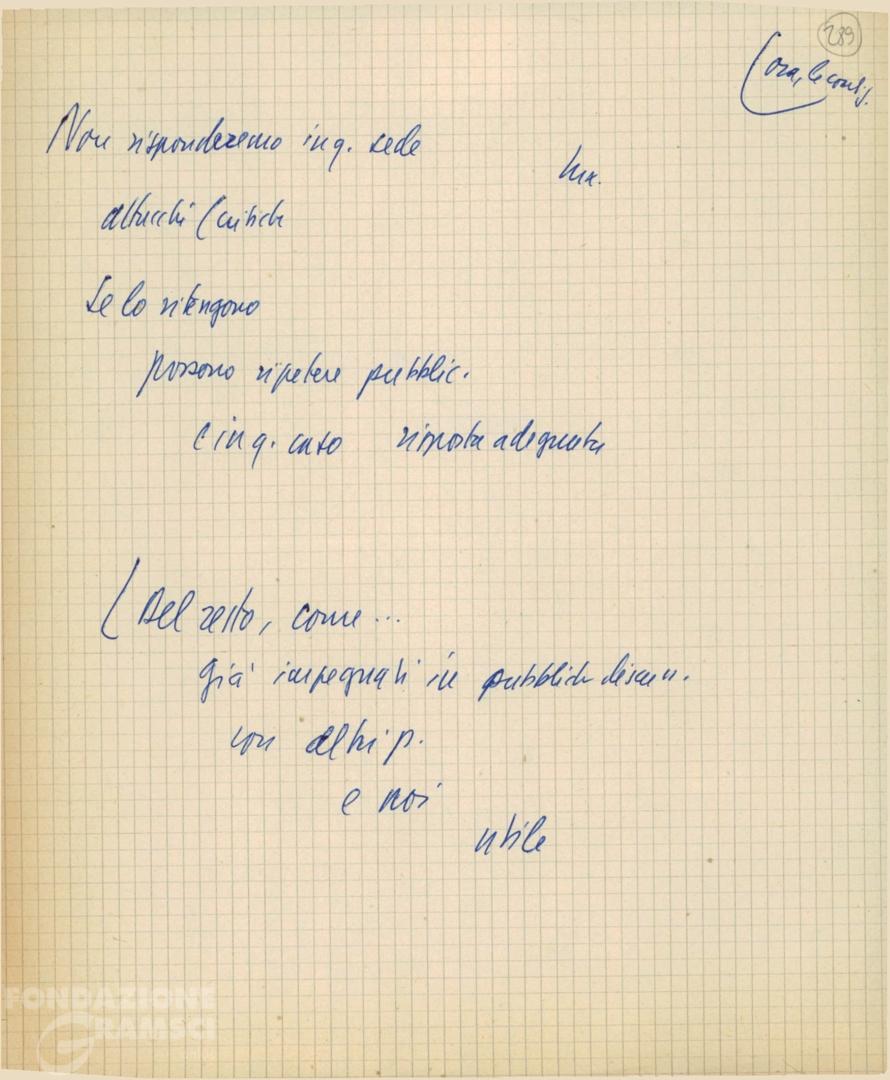 289
(ora,
Non risponderemo in q. sede
attacchi / critiche
se lo ritengono
possono ripetere pubblic.
e in q. caso risposta adeguata
(Del resto, come...
già impegnati in pubblich
con altri p.
e noi
utile
FONDAZIONE
GRAMSCI